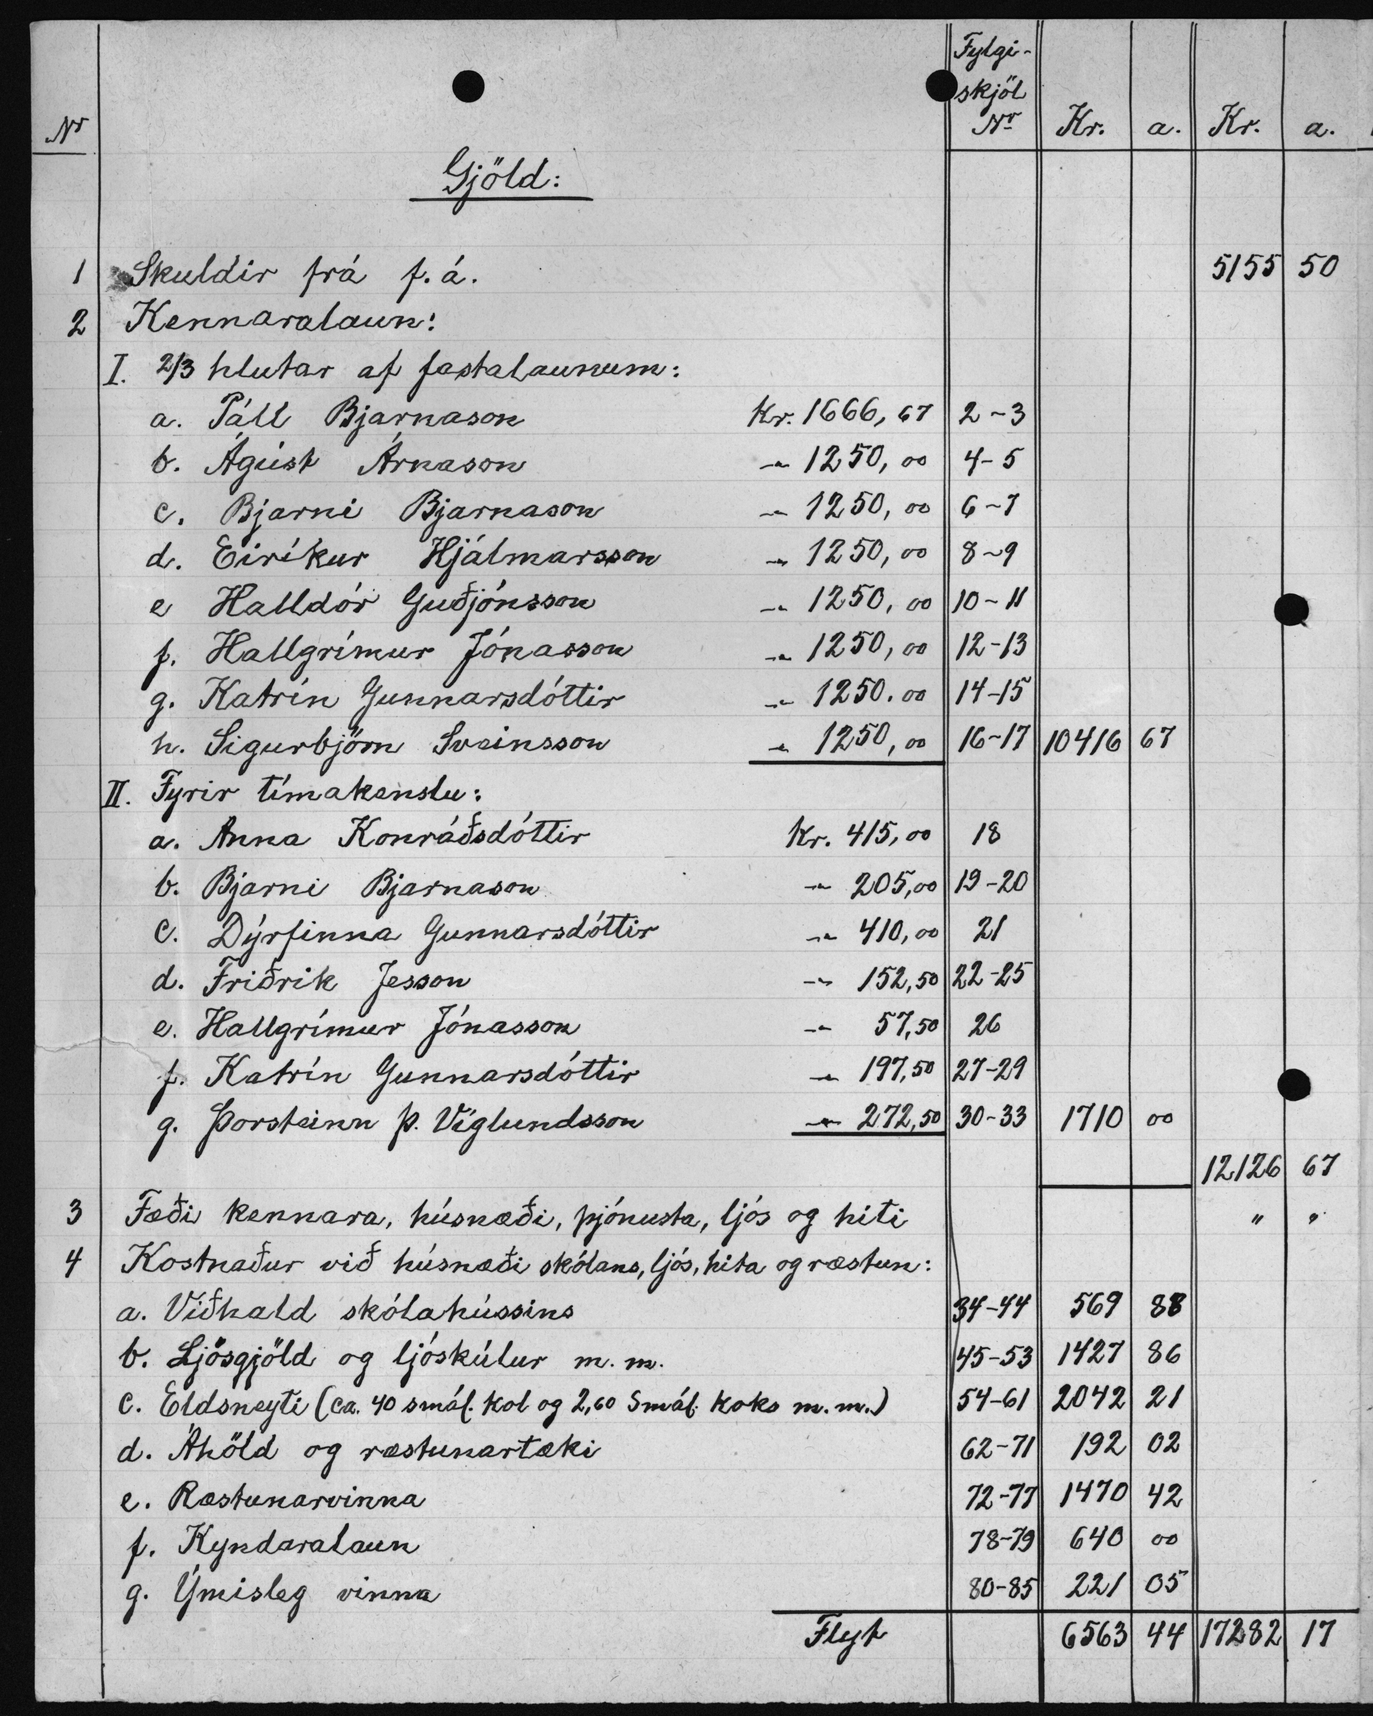 Fylgi-
skjöl
Nr Nr Kr. a. Kr. a.
Gjöld:
1 Skuldir frá f. á. 5155 50
2 Kennaralaun:
I. 2/3 hlutar af fastalaunum:
a. Páll Bjarnason Kr. 1666,67 2-3
b. Ágúst Árnason -"- 1250,00 4-5
c. Bjarni Bjarnason -"- 1250,00 6-7
d. Eiríkur Hjálmarsson -"- 1250,00 8-9
e Halldór Guðjónsson -"- 1250,00 10-11
f. Hallgrímur Jónasson -"- 1250,00 12-13
g. Katrín Gunnarsdóttir -"- 1250.00 14-15
h. Sigurbjörn Sveinsson -"- 1250,00 16-17 10416 67
II. Fyrir tímakenslu:
a. Anna Konráðsdóttir Kr. 415,00 18
b. Bjarni Bjarnason -"- 205,00 19-20
c. Dýrfinna Gunnarsdóttir -"- 410,00 21
d. Friðrik Jesson -"- 152,50 22-25
e. Hallgrímur Jónasson -"- 57,50 26
f. Katrín Gunnarsdóttir -"- 197,50 27-29
g. Þorsteinn Þ. Víglundsson -"- 272,50 30-33 1710 00
12126 67
3 Fæði kennara, húsnæði, þjónusta, ljós og hiti " "
4 Kostnaður við húsnæði skólans, ljós, hita og ræstun:
a. Viðhald skólahússins 34-44 569 88
b. Ljósgjöld og ljóskúlur m. m. 45-53 1427 86
c. Eldsneyti (ca. 40 smál. kol og 2,60 smál. koks m. m.) 54-61 2042 21
d. Áhöld og ræstunartæki 62-71 192 02
e. Ræstunarvinna 72-77 1470 42
f. Kyndaralaun 78-79 640 00
g. Ýmisleg vinna 80-85 221 05
Flyt 6563 44 17282 17